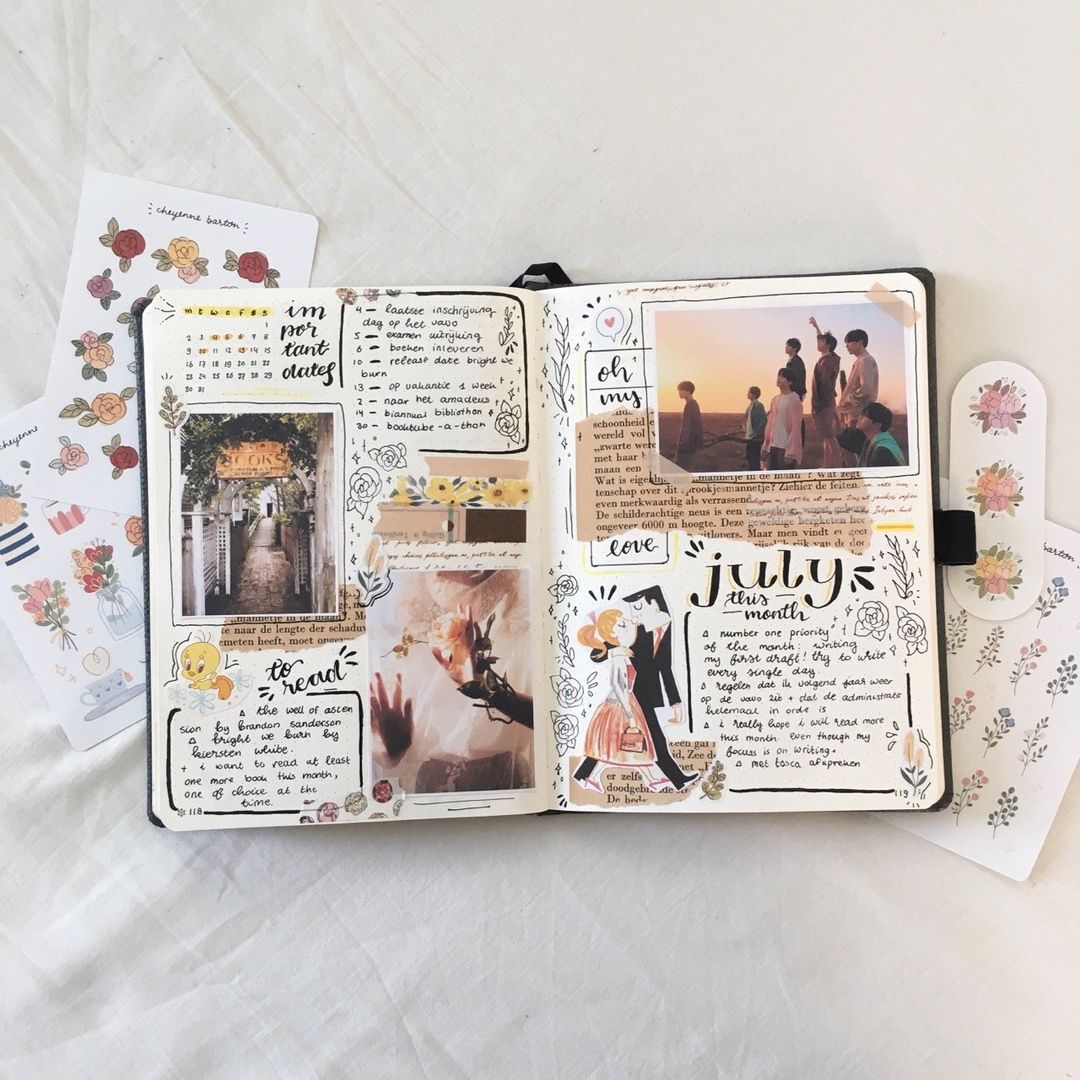 cheyenne barton
cheyenne
m t w t f s s
1
2 3 4 5 6 7 8
9 10 11 12 13 14 15
16 17 18 19 20 21 22
23 24 25 26 27 28 29
30 31
im
por
tant
dates
4 — laatste inschrijving
dag op het vavo
5 — examen uitrijking
6 — boeken inleveren
10 — release date bright we
burn
13 — op vakantie 1 week
2 — naar het amadeus
14 — biannual bibliothon
30 — booktube-a-thon
BOOKS
mannetje in de maan?
te naar de lengte der schaduw
meten heeft, moet
to
read
the well of ascen
sion by brandon sanderson
bright we burn by
kiersten white.
+ i want to read at least
one more book this month,
one of choice at the
time.
118
oh
my
schoonheid
wereld vol
„zwarte
met haar
maan een
Wat is in de maan"? Wat zegt
tenschap over dit sprookjesmannetje? Ziehier de feiten.
even merkwaardig als verrassend
De schilderachtige neus is een
ongeveer 6000 m hoogte. Deze geweldige bergketen
uitlopers. Maar men vindt er
rijk van de
love
july
this
month
number one priority
of the month: writing
my first draft! try to write
every single day.
regelen dat ik volgend jaar weer
op de vavo zit + dat de administratie
helemaal in orde is
i really hope i will read more
this month. even though my
focuss is on writing.
met tosca afspreken
er zelfs
doodgeb
De
een
Zee
119
barton